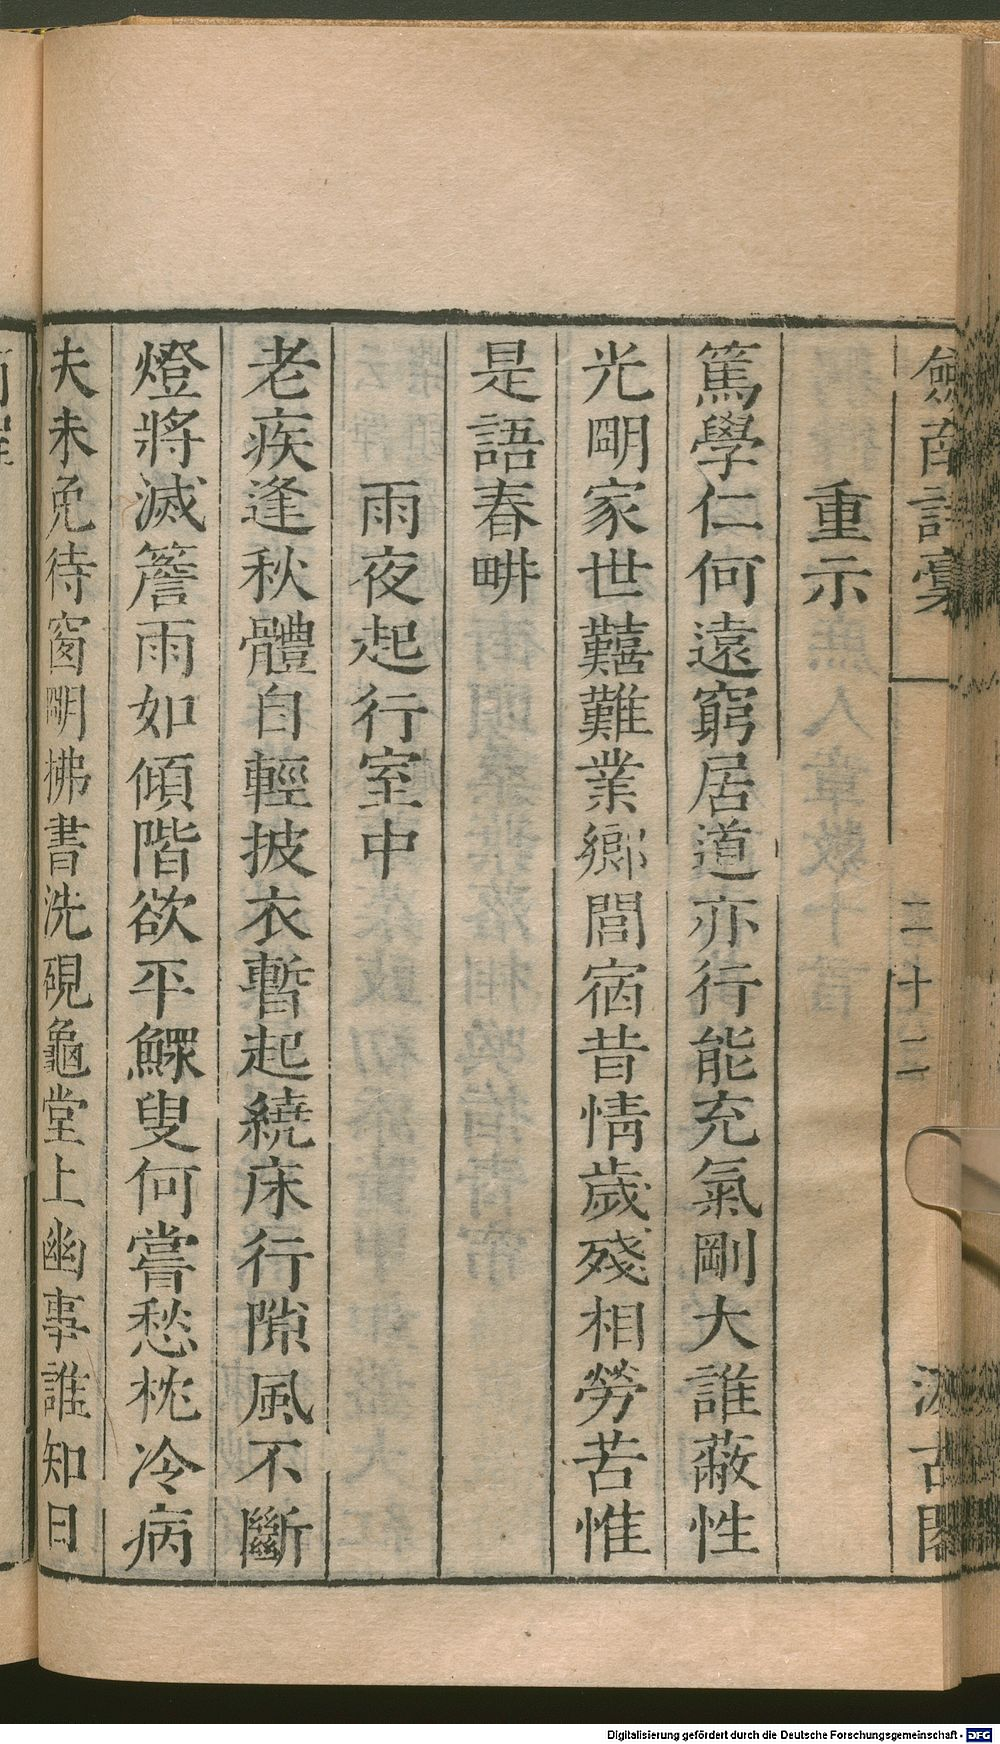 劍南詩稾
二十二
汲古閣
重示
篤學仁何遠窮居道亦行能充氣剛大誰蔽性
光朙家世囏難業鄉閭宿昔情歲殘相勞苦惟
是語春畊
雨夜起行室中
老疾逢秋體自輕披衣暫起繞床行隙風不斷
燈將滅簷雨如傾階欲平鰥叟何嘗愁枕冷病
夫未免待窗朙拂書洗硯龜堂上幽事誰知日
Digitalisierung gefördert durch die Deutsche Forschungsgemeinschaft - DFG